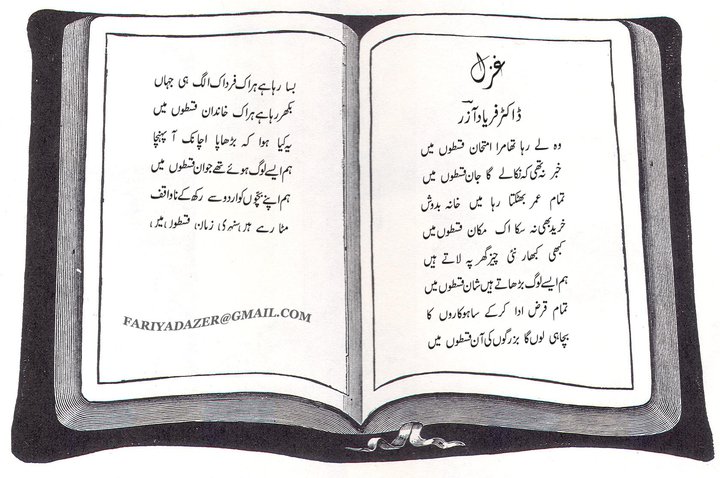 غزل
ڈاکٹر فریاد آزر
وہ لے رہا تھا مرا امتحان قسطوں میں
خبر نہ تھی کہ نکالے گا جان قسطوں میں
تمام عمر بھٹکتا رہا میں خانہ بدوش
خرید بھی نہ سکا اک مکان قسطوں میں
کبھی کبھار نئی چیز گھر پہ لاتے ہیں
ہم ایسے لوگ بڑھاتے ہیں شان قسطوں میں
تمام قرض ادا کر کے ساہوکاروں کا
بچا ہی لوں گا بزرگوں کی آن قسطوں میں
بسا رہا ہے ہر اک فرد اک الگ ہی جہاں
بکھر رہا ہے ہر اک خاندان قسطوں میں
یہ کیا ہوا کہ بڑھاپا اچانک آ پہنچا
ہم ایسے لوگ ہوئے تھے جوان قسطوں میں
ہم اپنے بچوں کو اردو سے رکھ کے ناواقف
مٹا رہے ہیں سنہری زبان قسطوں میں
FARIYADAZER@GMAIL.COM